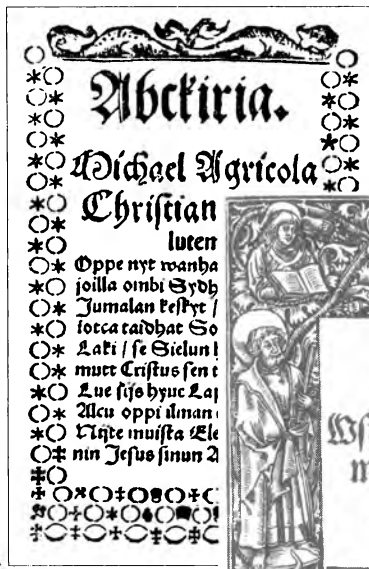 Abckiria.
Michael Agricola
Christian
luten
Oppe nyt wanha
joilla ombi Sydh
Jumalan keskyt /
iotca taidhat So
Laki / se Sielun h
mutt Cristus sen t
Lue sijs hyue Lap
Alcu oppi ilman
Nijte muista Ele
nin Jesus sinun A
Ws